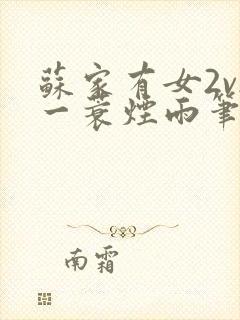 蘇家有女2v
一蓑煙雨筆
南霜